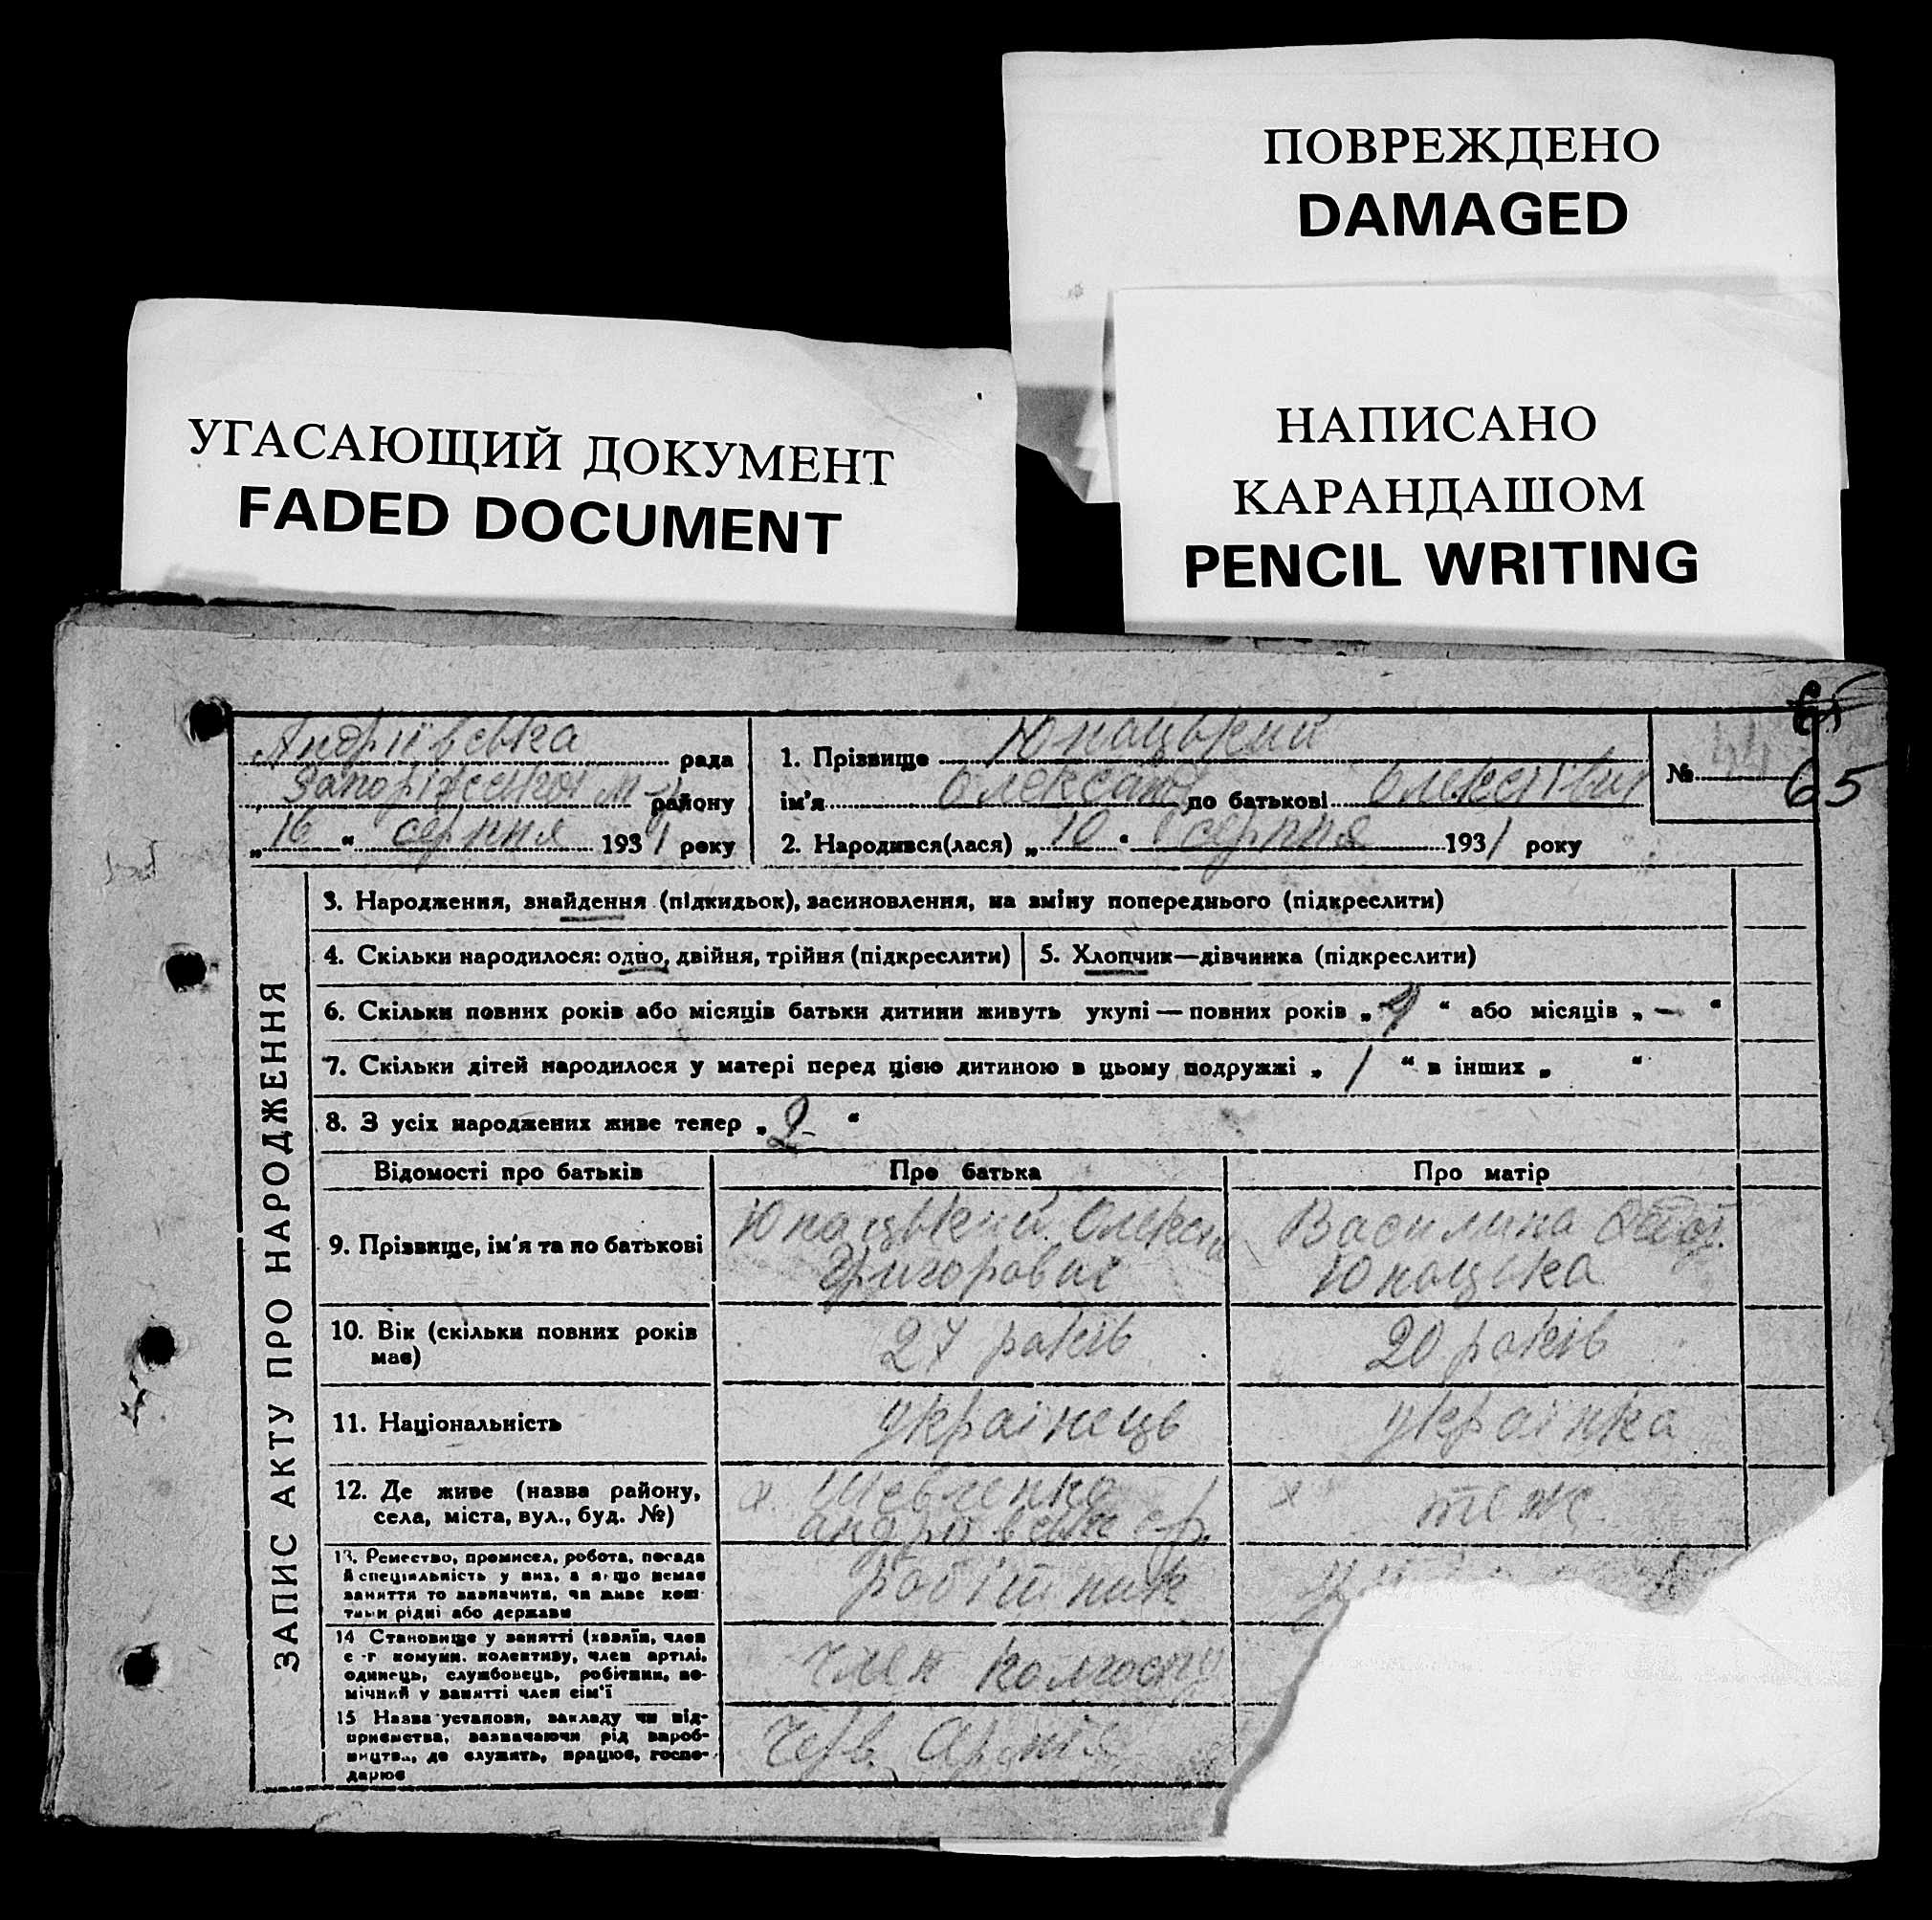 ПОВРЕЖДЕНО
DAMAGED
УГАСАЮЩИЙ ДОКУМЕНТ
FADED DOCUMENT
НАПИСАНО
КАРАНДАШОМ
PENCIL WRITING
65
Андріївська рада
району
„16“ серпня 1931 року
1. Прізвище Юнацький
ім'я по батькові
2. Народився(лася) „10“ серпня 1931 року
№ 44
65
ЗАПИС АКТУ ПРО НАРОДЖЕННЯ
3. Народження, знайдення (підкидьок), засиновлення, на зміну попереднього (підкреслити)
4. Скільки народилося: одно, двійня, трійня (підкреслити)
5. Хлопчик—дівчинка (підкреслити)
6. Скільки повних років або місяців батьки дитини живуть укупі — повних років „ “ або місяців „—“
7. Скільки дітей народилося у матері перед цією дитиною в цьому подружжі „1“ в інших „ “
8. З усіх народжених живе тепер „2“
Відомості про батьків
Про батька
Про матір
9. Прізвище, ім'я та по батькові
Юнацький
Григорович
Василина
Юнацька
10. Вік (скільки повних років
має)
27 років
20 років
11. Національність
українець
українка
12. Де живе (назва району,
села, міста, вул., буд. №)
х. Шевченко
х теж
13. Ремество, промисел, робота, посада
й спеціяльність у них, а якщо немає
заняття то зазначити, чи живе кош-
тами рідні або держави
робітник
14 Становище у занятті (хазяїн, член
с.-г комуни, колективу, член артілі,
одинець, службовець, робітник, по-
мічний у занятті член сім'ї
член колгоспу
15 Назва установи, закладу чи під-
приємства, зазначаючи рід вироб-
ництва, де служить, працює, госпо-
дарює
Черв. Армія